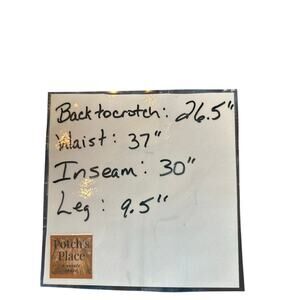 Back to crotch: 26.5"
Waist: 37"
Inseam: 30"
Leg: 9.5"
Potch's
Place